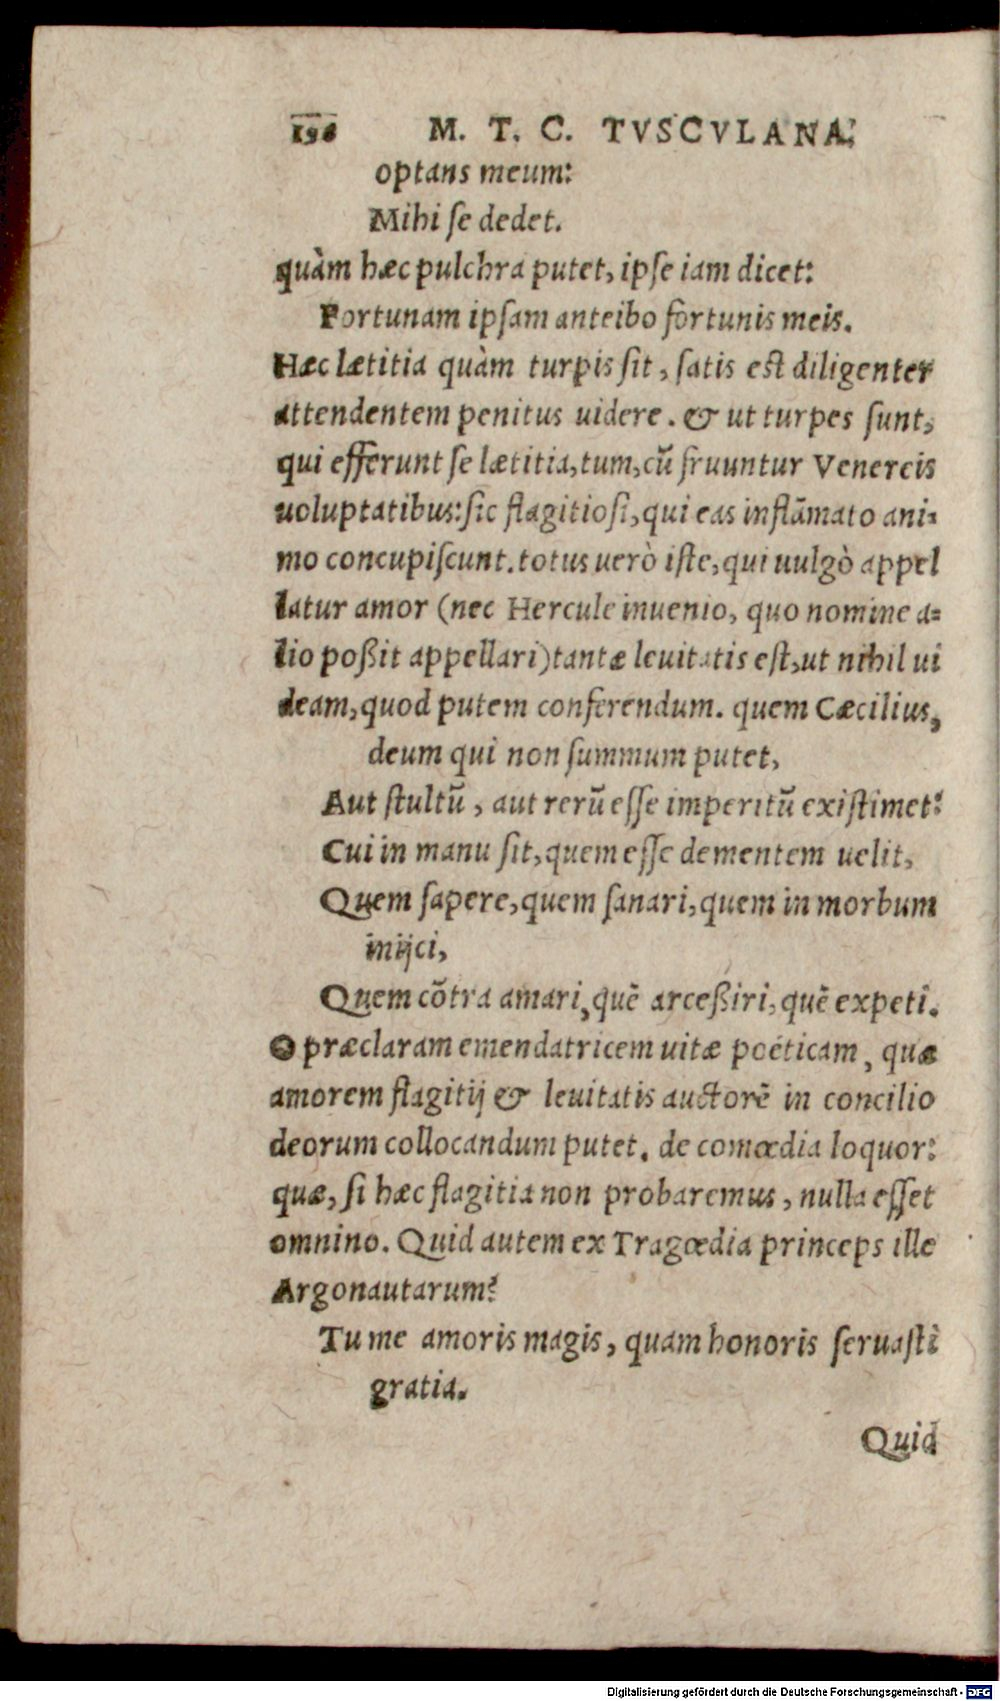 198 M. T. C. TVSCVLANA.
optans meum:
Mihi ſe dedet.
quàm hæc pulchra putet, ipſe iam dicet:
Fortunam ipſam anteibo fortunis meis.
Hæc lætitia quàm turpis ſit, ſatis eſt diligenter
attendentem penitus uidere. & ut turpes ſunt,
qui efferunt ſe lætitia, tum, cū fruuntur Venereis
uoluptatibus: ſic flagitioſi, qui eas inflāmato ani-
mo concupiſcunt. totus uerò iſte, qui uulgò appel
latur amor (nec Hercule inuenio, quo nomine a-
lio poßit appellari) tantæ leuitatis eſt, ut nihil ui
deam, quod putem conferendum. quem Cæcilius,
deum qui non ſummum putet,
Aut ſtultū, aut rerū eſſe imperitū exiſtimet:
Cui in manu ſit, quem eſſe dementem uelit,
Quem ſapere, quem ſanari, quem in morbum
inijci,
Quem cōtra amari, quē arceßiri, quē expeti.
O præclaram emendatricem uitæ poëticam, quæ
amorem flagitij & leuitatis auctorē in concilio
deorum collocandum putet. de comœdia loquor:
quæ, ſi hæc flagitia non probaremus, nulla eſſet
omnino. Quid autem ex Tragœdia princeps ille
Argonautarum?
Tu me amoris magis, quam honoris ſeruaſti
gratia.
Quid
Digitalisierung gefördert durch die Deutsche Forschungsgemeinschaft - DFG